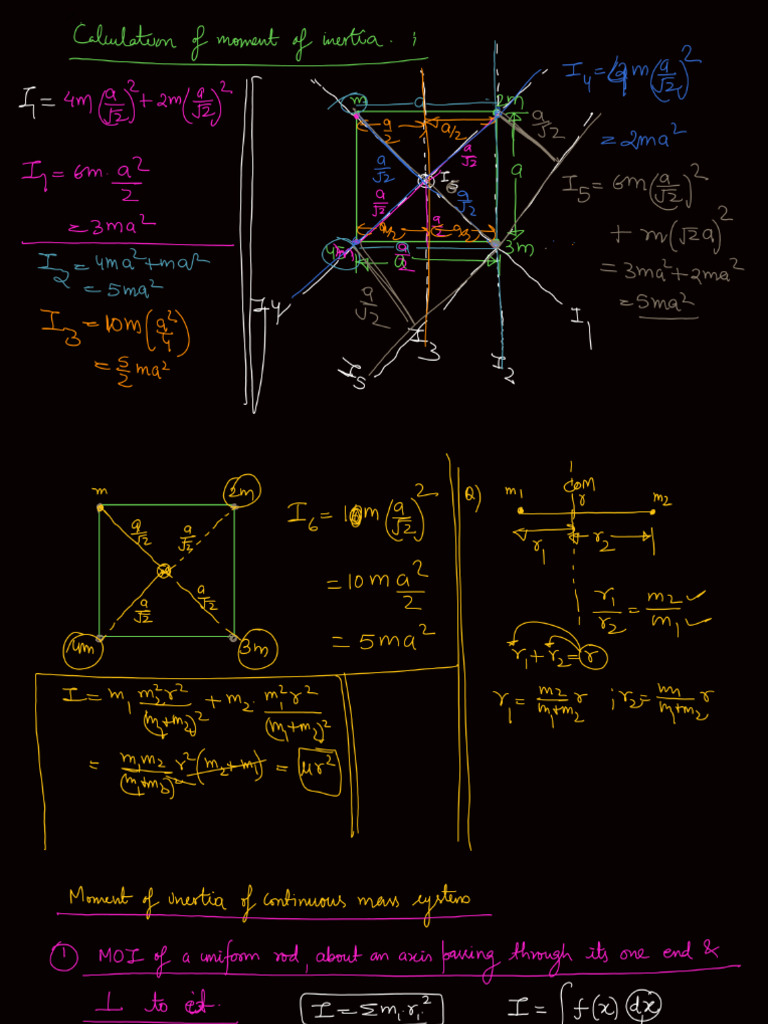 Calculation of moment of inertia. ;
I₁ = 4m(a/√2)² + 2m(a/√2)²
I₁ = 6m · a²/2
= 3ma²
I₂ = 4ma² + ma²
= 5ma²
I₃ = 10m(a²/4)
= 5/2 ma²
m a 2m
a/2 a/2 a/√2
a/√2 a/√2 a
I₆
a/√2 a/√2
a/2 a/2 a/2
4m a/2 3m
a
a/√2
I₄ I₃ I₁
I₅ I₂
I₄ = 4m(a/√2)²
= 2ma²
I₅ = 6m(a/√2)²
+ m(√2a)²
= 3ma² + 2ma²
= 5ma²
m 2m
a/√2 a/√2
a/√2 a/√2
4m 3m
I₆ = 10m(a/√2)²
= 10m a²/2
= 5ma²
Q) m₁ COM r m₂
r₁ r₂
r₁/r₂ = m₂/m₁
r₁ + r₂ = r
r₁ = m₂/(m₁+m₂) r ; r₂ = m₁/(m₁+m₂) r
I = m₁ m₂²r²/(m₁+m₂)² + m₂ · m₁²r²/(m₁+m₂)²
= m₁m₂/(m₁+m₂)² r² (m₂+m₁) = μr²
Moment of inertia of continuous mass system
① MOI of a uniform rod, about an axis passing through its one end &
⊥ to it. I = Σmᵢ·rᵢ² I = ∫f(x) dx